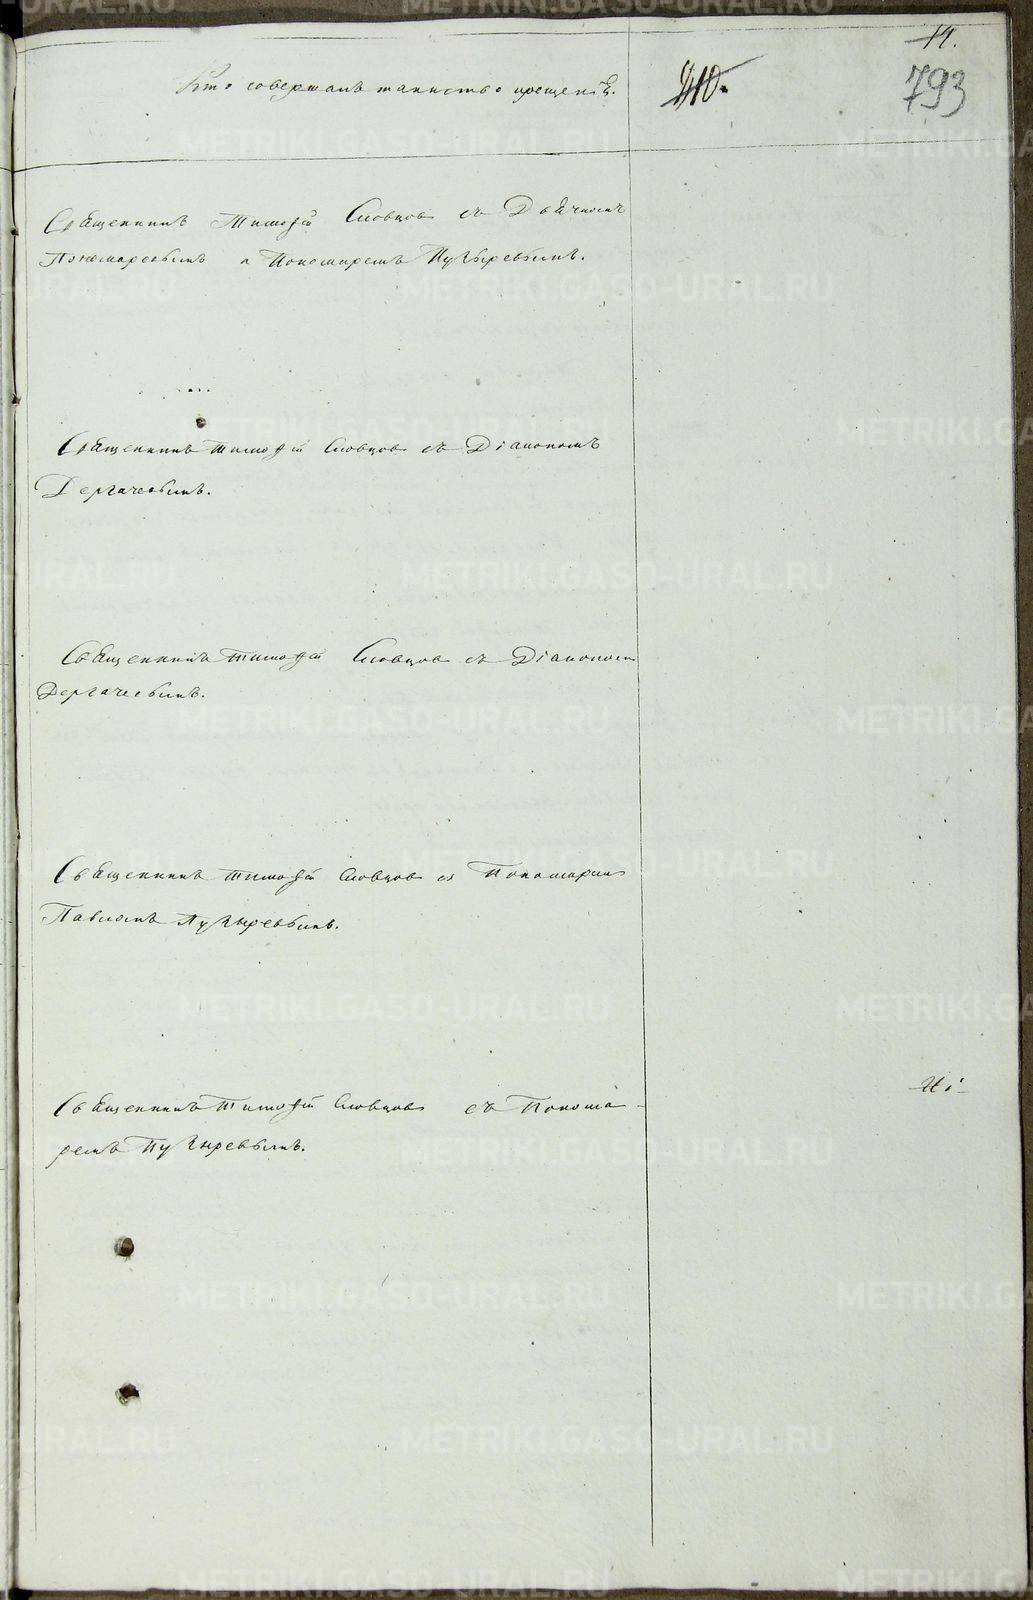 14.
793
410.
Кто совершалъ таинство крещенія.
Священникъ Тимофей Словцов съ Дьячкомъ
Пономаревымъ и Пономаремъ Пузыревымъ.
Священникъ Тимофей Словцов съ Діакономъ
Дергачевымъ.
Священникъ Тимофей Словцов съ Діакономъ
Дергачевымъ.
Священникъ Тимофей Словцов съ Пономаремъ
Павломъ Пузыревымъ.
Священникъ Тимофей Словцов съ Понома-
ремъ Пузыревымъ.
METRIKI.GASO-URAL.RU